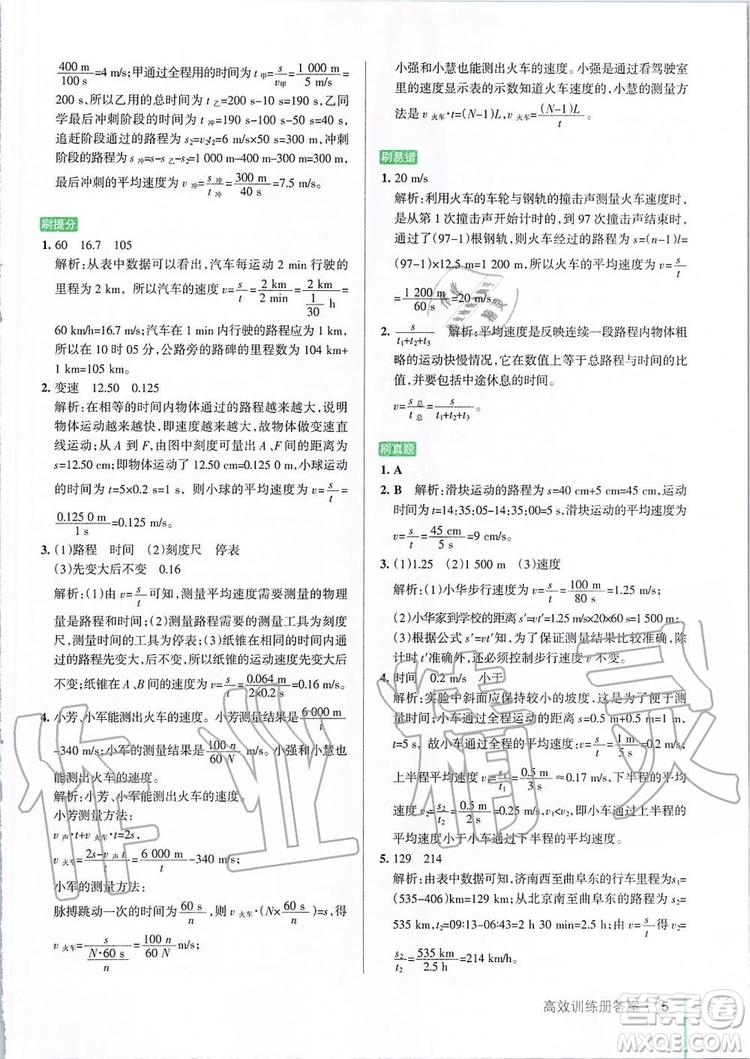 400 m/100 s=4 m/s;甲通过全程用的时间为 t甲=s/v=1 000 m/5 m/s=
200 s,所以乙用的总时间为 t乙=200 s-10 s=190 s,乙同
学最后冲刺的时间为 t冲=190 s-100 s-50 s=40 s,
追赶阶段的路程 s2=v2t2=6 m/s×50 s=300 m,冲刺
阶段的路程为 s冲=s-s乙-s2=1 000 m-400 m-300 m=300 m,
最后冲刺的平均速度为 s冲/t冲=300 m/40 s=7.5 m/s。
刷提分
1. 60 16.7 105
解析:从表中数据可以看出,汽车每运动 2 min 行驶的
里程为 2 km,所以汽车的速度 v=s/t=2 km/2 min=2 km/(1/30 h)=
60 km/h=16.7 m/s;汽车在 1 min 行驶的路程应为 1 km,
所以到 10 时 05 分,公路旁的路碑的里程数为 104 km+
1 km=105 km。
2. 变速 12.50 0.125
解析:在相等的时间内物体通过的路程越来越大,说明
物体运动越来越快,即速度越来越大,故物体做变速直
线运动;从 A 到 F,由图中刻度可知,两点间的距离为
s=12.50 cm;即物体运动了 12.50 cm=0.125 0 m,小球运动
的时间 t=5×0.2 s=1 s,则小球的平均速度为 v=s/t=
0.125 0 m/1 s=0.125 m/s。
3. (1)路程 时间 (2)刻度尺 停表
(3)先变大后不变 0.16
解析:(1)由 v=s/t可知,测量平均速度需要测量的物理
量是路程和时间;(2)测量路程需要的测量工具为刻度
尺,测量时间的工具为停表;(3)纸锥在相同时间内通过
的路程先变大后不变,所以纸锥的运动速度先变大后不
变;纸锥在 A、B 间的速度为 v=s/t=0.064 m/2×0.2 s=0.16 m/s。
4. 小芳、小军能测出火车的速度。小芳测量结果是6 000 m/t
-340 m/s;小军的测量结果是100 n/60 N m/s。小强和小慧也
能测出火车的速度。
解析:小芳、小军能测出火车的速度。
小芳测量方法:
v声·t+v火车·t=2s,
v火车=2s-v声t/t=6 000 m/t-340 m/s;
小军的测量方法:
脉搏跳动一次的时间为60 s/n,则 v火车·(N×60 s/n)=s,得
v火车=s/(N·60 s/n)=100 n/60 N m/s;
小强和小慧也能测出火车的速度。小强是通过看驾驶室
里的速度显示表的示数知道火车速度的,小慧的测量方
法是 v火车·t=(N-1)L,v火车=(N-1)L/t。
刷易错
1. 20 m/s
解析:利用火车的车轮与钢轨的撞击声测量火车速度时,
是从第 1 次撞击声开始的,到 97 次撞击声时,火车经过
(97-1)根钢轨,所以火车运动的路程为 s=(n-1)l=
(97-1)×12.5 m=1 200 m,所以火车的平均速度为 v=s/t=
1 200 m/60 s=20 m/s。
2. s/t1+t2+t3 解析:平均速度是反映连续一段路程内物体粗
略的运动快慢情况,它在数值上等于总路程与总时间的
比值,包括中途休息的时间。
v=s总/t总=s/t1+t2+t3。
刷真题
1. A
2. B 解析:滑块运动的路程为 s=40 cm+5 cm=45 cm,运动
时间为 t=14:35:05-14:35:00=5 s,滑块运动的平均速度为
v=s/t=45 cm/5 s=9 cm/s。
3. (1)1.25 (2)1 500 m (3)速度
解析:(1)小华步行速度为 v=s/t=100 m/80 s=1.25 m/s。
(2)小华家到学校的距离 s′=vt′=1.25 m/s×20×60 s=1 500 m;
(3)根据公式 s′=vt′知,为了保证测量结果比较准确,除计
时 t′准确外,还必须保持步行速度 v不变。
4. 时间 0.2 m/s 小于
解析:实验中斜面应保持较小的坡度,这样小车运动时间
较长,便于测时间;小车通过全程运动的路程 s=0.5 m+0.5 m=1 m,
t=5 s,故小车通过全程的平均速度:v=s/t=1 m/5 s=0.2 m/s;
上半程平均速度 v1=s1/t1=0.5 m/3 s≈0.17 m/s,下半程的平均
速度:v2=s2/t2=0.5 m/2 s=0.25 m/s,v1<v2,故小车通过上半程的
平均速度小于小车通过下半程的平均速度。
5. 129 214
解析:由表中数据可知,济南西至曲阜东的行车里程为s1=
(535-406)km=129 km;从北京南至曲阜东的路程为 s2=
535 km,t2=09:13-06:43=2 h 30 min=2.5 h,由 v=s/t得 v2=
s2/t2=535 km/2.5 h=214 km/h。
高效训练册答案 5
作业精灵
答案圈
MXQE.COM